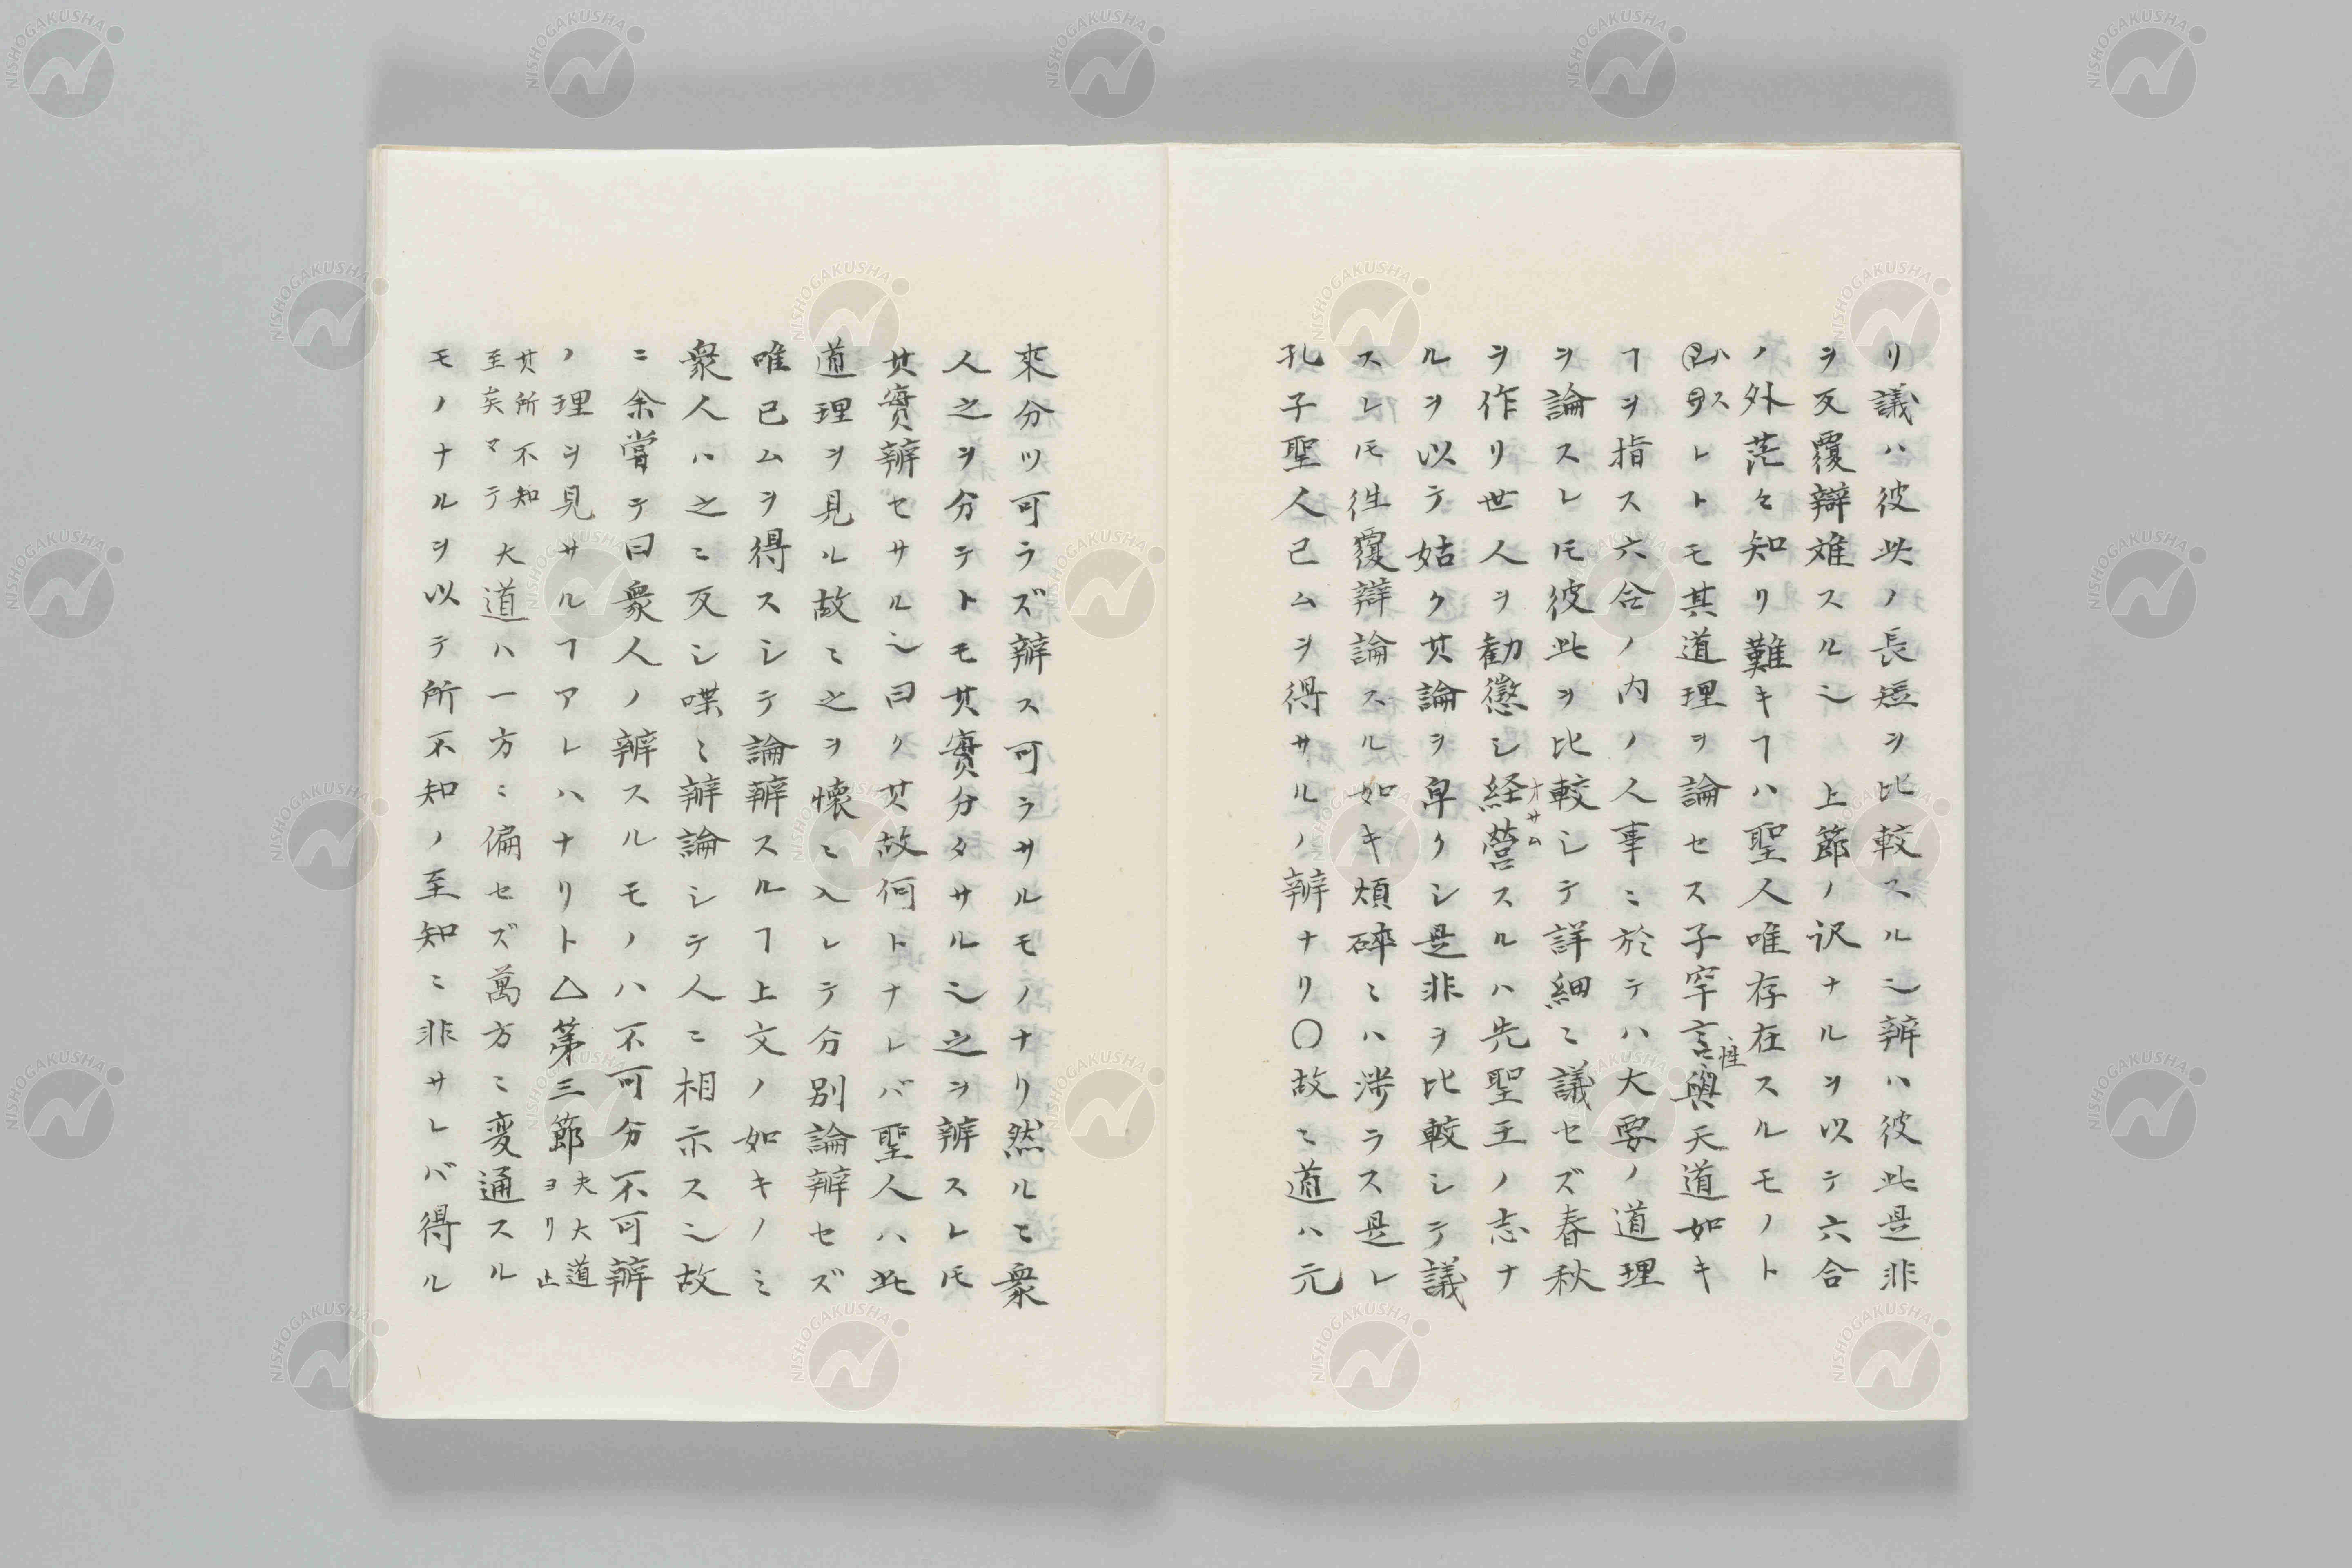 リ議ハ彼此ノ長短ヲ比較スル乄辨ハ彼此是非
ヲ反覆辯难スル乄 上節ノ訳ナルヲ以テ六合
ノ外茫々知リ難キヿハ聖人唯存在スルモノト
ハスレトモ其道理ヲ論セス子罕言性與天道如キ
ヿヲ指ス六合ノ内ノ人事ニ於テハ大要ノ道理
ヲ論スレ𪜈彼此ヲ比較シテ詳細ニ議セズ春秋
ヲ作リ世人ヲ勧懲シ経営オサムスルハ先聖王ノ志ナ
ルヲ以テ姑ク其論ヲ卑クシ是非ヲ比較シテ議
スレ𪜈往覆辯論スル如キ煩碎ニハ渉ラス是レ
孔子聖人已ムヲ得サルノ辨ナリ〇故ニ道ハ元
來分ツ可ラズ辨ス可ラサルモノナリ然ルニ衆
人之ヲ分テトモ其實分タサル乄之ヲ辨スレ𪜈
其實辨セサル乄曰ク其故何トナレバ聖人ハ此
道理ヲ見ル故ニ之ヲ懐ニ入レテ分別論辨セズ
唯已ムヲ得スシテ論辨スルヿ上文ノ如キノミ
衆人ハ之ニ反シ喋ミ辨論シテ人ニ相示ス乄故
ニ余嘗テ曰衆人ノ辨スルモノハ不可分不可辨
ノ理ヲ見サルヿアレハナリト△第三節夫大道ヨリ止
其所不知至矣マテ大道ハ一方ニ偏セズ萬方ニ変通スル
モノナルヲ以テ所不知ノ至知ニ非サレバ得ル
NISHOGAKUSHA